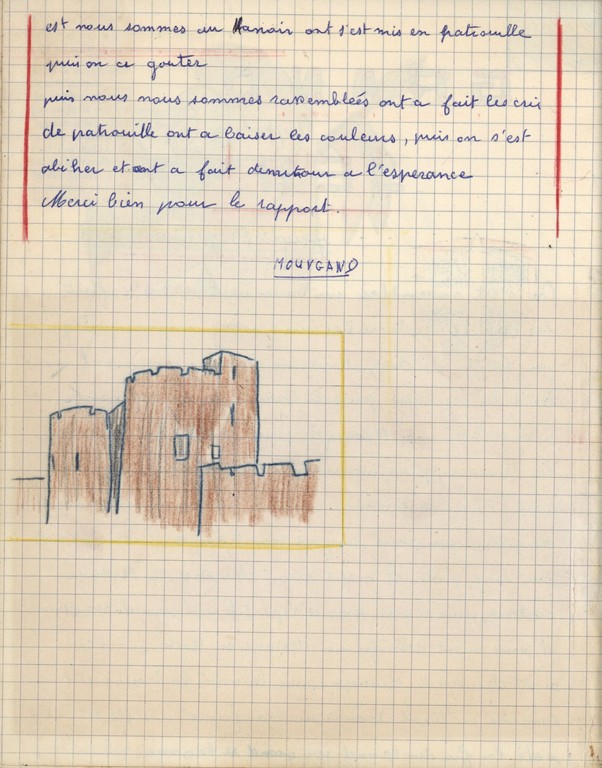 est nous sommes au Manoir ont s'est mis en patrouille
puis on a gouter
puis nous nous sommes rassemblées ont a fait les cris
de patrouille ont a baiser les couleurs, puis on s'est
abiller et ont a fait demitour a l'esperance
Merci bien pour le rapport.
MOUYGAND